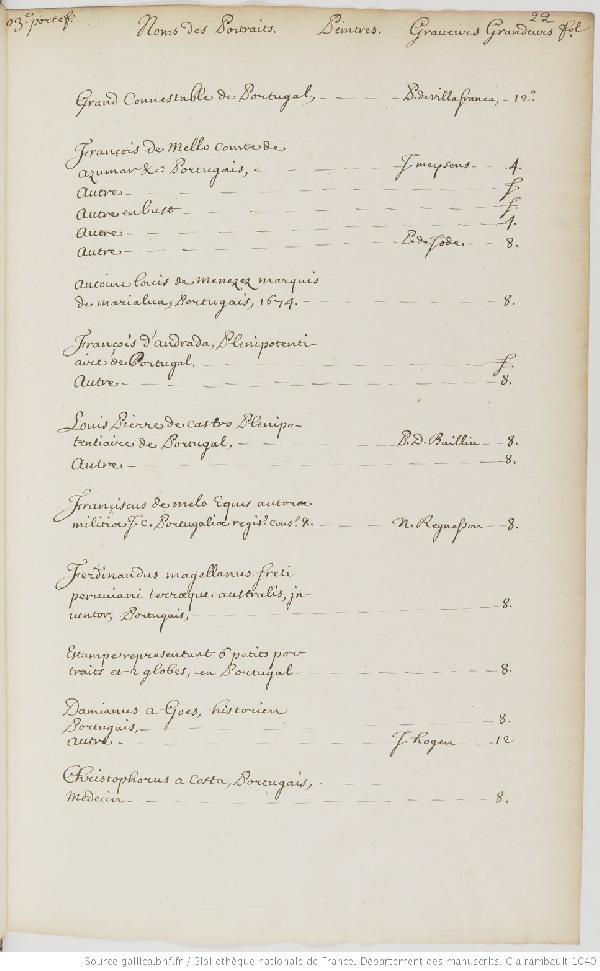 03.e portef.
22
Noms des Portraits. Peintres. Graveurs Grandeurs fol
Grand Connestable de Portugal, P. de villafranca, 12.o
François de Mello Comte de
azumar &c.a Portugais, J. meysens 4.
Autre f.
Autre en bust f.
Autre 4.
Autre P. de Jode 8.
Antoine loüis de menezez marquis
de marialua, Portugais, 1674. 8.
François d'andrada, Plenipotenti-
aire de Portugal, f.
Autre 8.
Louis Pierre de Castro Plenipo-
tentiaire de Portugal, P. D. Bailliu 8.
Autre 8.
Franciscus de melo Eques auratae
militiae J. C. Portugaliae regis. cons. &. N. Regnesson 8.
Ferdinandus magellanus, freti
peruuiani terraeque australis, jn-
uentor, Portugais, 8.
Estampe representant 6 petits por
traits et 2 globes, en Portugal 8.
Damianus a Goes, historien
Portugais, 8.
Autre J. hogen 12
Christophorus a Costa, Portugais,
Medecin 8.
Source gallica.bnf.fr / Bibliothèque nationale de France. Département des manuscrits. Clairambault 1040